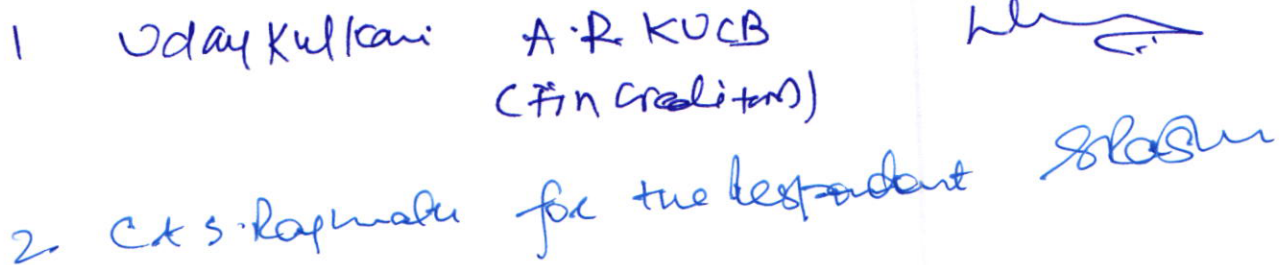 1 Uday Kulkarni A.R. KUCB
(Fin Creditors)
2. CA S. for the Respondent